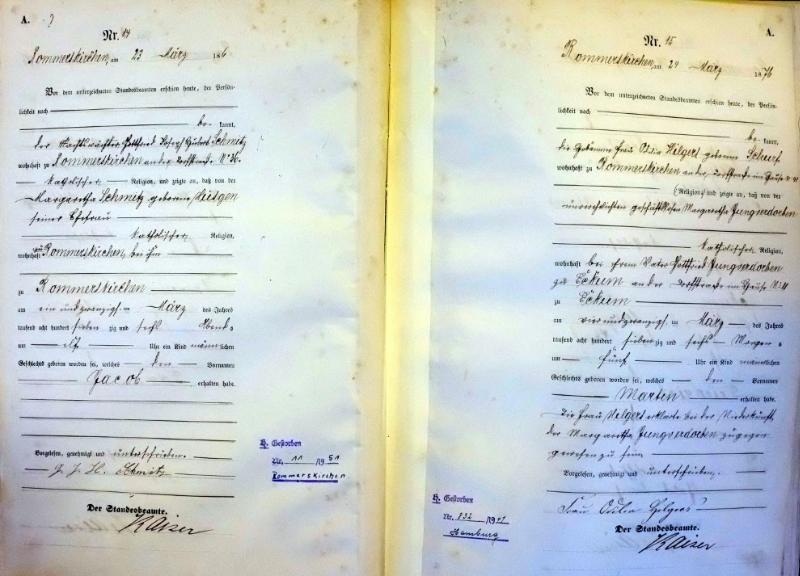 A.
Nr. 14
Rommerskirchen, am 23 März 187
Vor dem unterzeichneten Standesbeamten erschien heute, der Persön-
lichkeit nach
be- kannt,
der Gottfried Joseph Hubert Schmitz
wohnhaft zu Rommerskirchen an der Dorfstraße N 36
katholischer Religion, und zeigte an, daß von der
Margaretha Schmitz geborene
seiner Ehefrau
katholischer Religion,
wohnhaft zu Rommerskirchen, bei ihm
zu Rommerskirchen
am ein und zwanzigsten März des Jahres
tausend acht hundert sieben zig und sechs Abends
um elf Uhr ein Kind männlichen
Geschlechts geboren worden sei, welches den Vornamen
Jacob erhalten habe.
Vorgelesen, genehmigt und unterschrieben
J. J. H. Schmitz
Der Standesbeamte.
Kaiser
H. Gestorben
Nr. 11 /1951
Rommerskirchen
Nr. 15
A.
Rommerskirchen, am 24 März 1876
Vor dem unterzeichneten Standesbeamten erschien heute, der Persön-
lichkeit nach
be- kannt,
die Hebamme Frau Odilia Hilgers geborene
wohnhaft zu Rommerskirchen an der Dorfstraße im Hause N
Religion, und zeigte an, daß von der
unverehelichten geschäftslosen Margaretha Jungverdorben
katholischer Religion,
wohnhaft bei ihrem Vater Gottfried Jungverdorben
zu Eckum an der Dorfstraße im Hause N
zu Eckum
am vier und zwanzigsten März des Jahres
tausend acht hundert sieben zig und sechs Morgens
um fünf Uhr ein Kind männlichen
Geschlechts geboren worden sei, welches den Vornamen
Martin erhalten habe.
Die Frau Hilgers erklärte bei der Niederkunft
der Margaretha Jungverdorben zugegen
gewesen zu sein
Vorgelesen, genehmigt und unterschrieben.
Frau Odilia Hilgers
Der Standesbeamte.
Kaiser
H. Gestorben
Nr. 832 /19
Hamburg